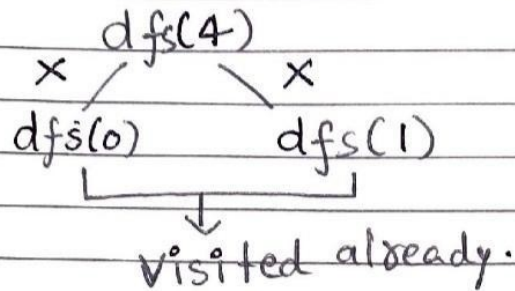 dfs(4)
× ×
dfs(0) dfs(1)
visited already.